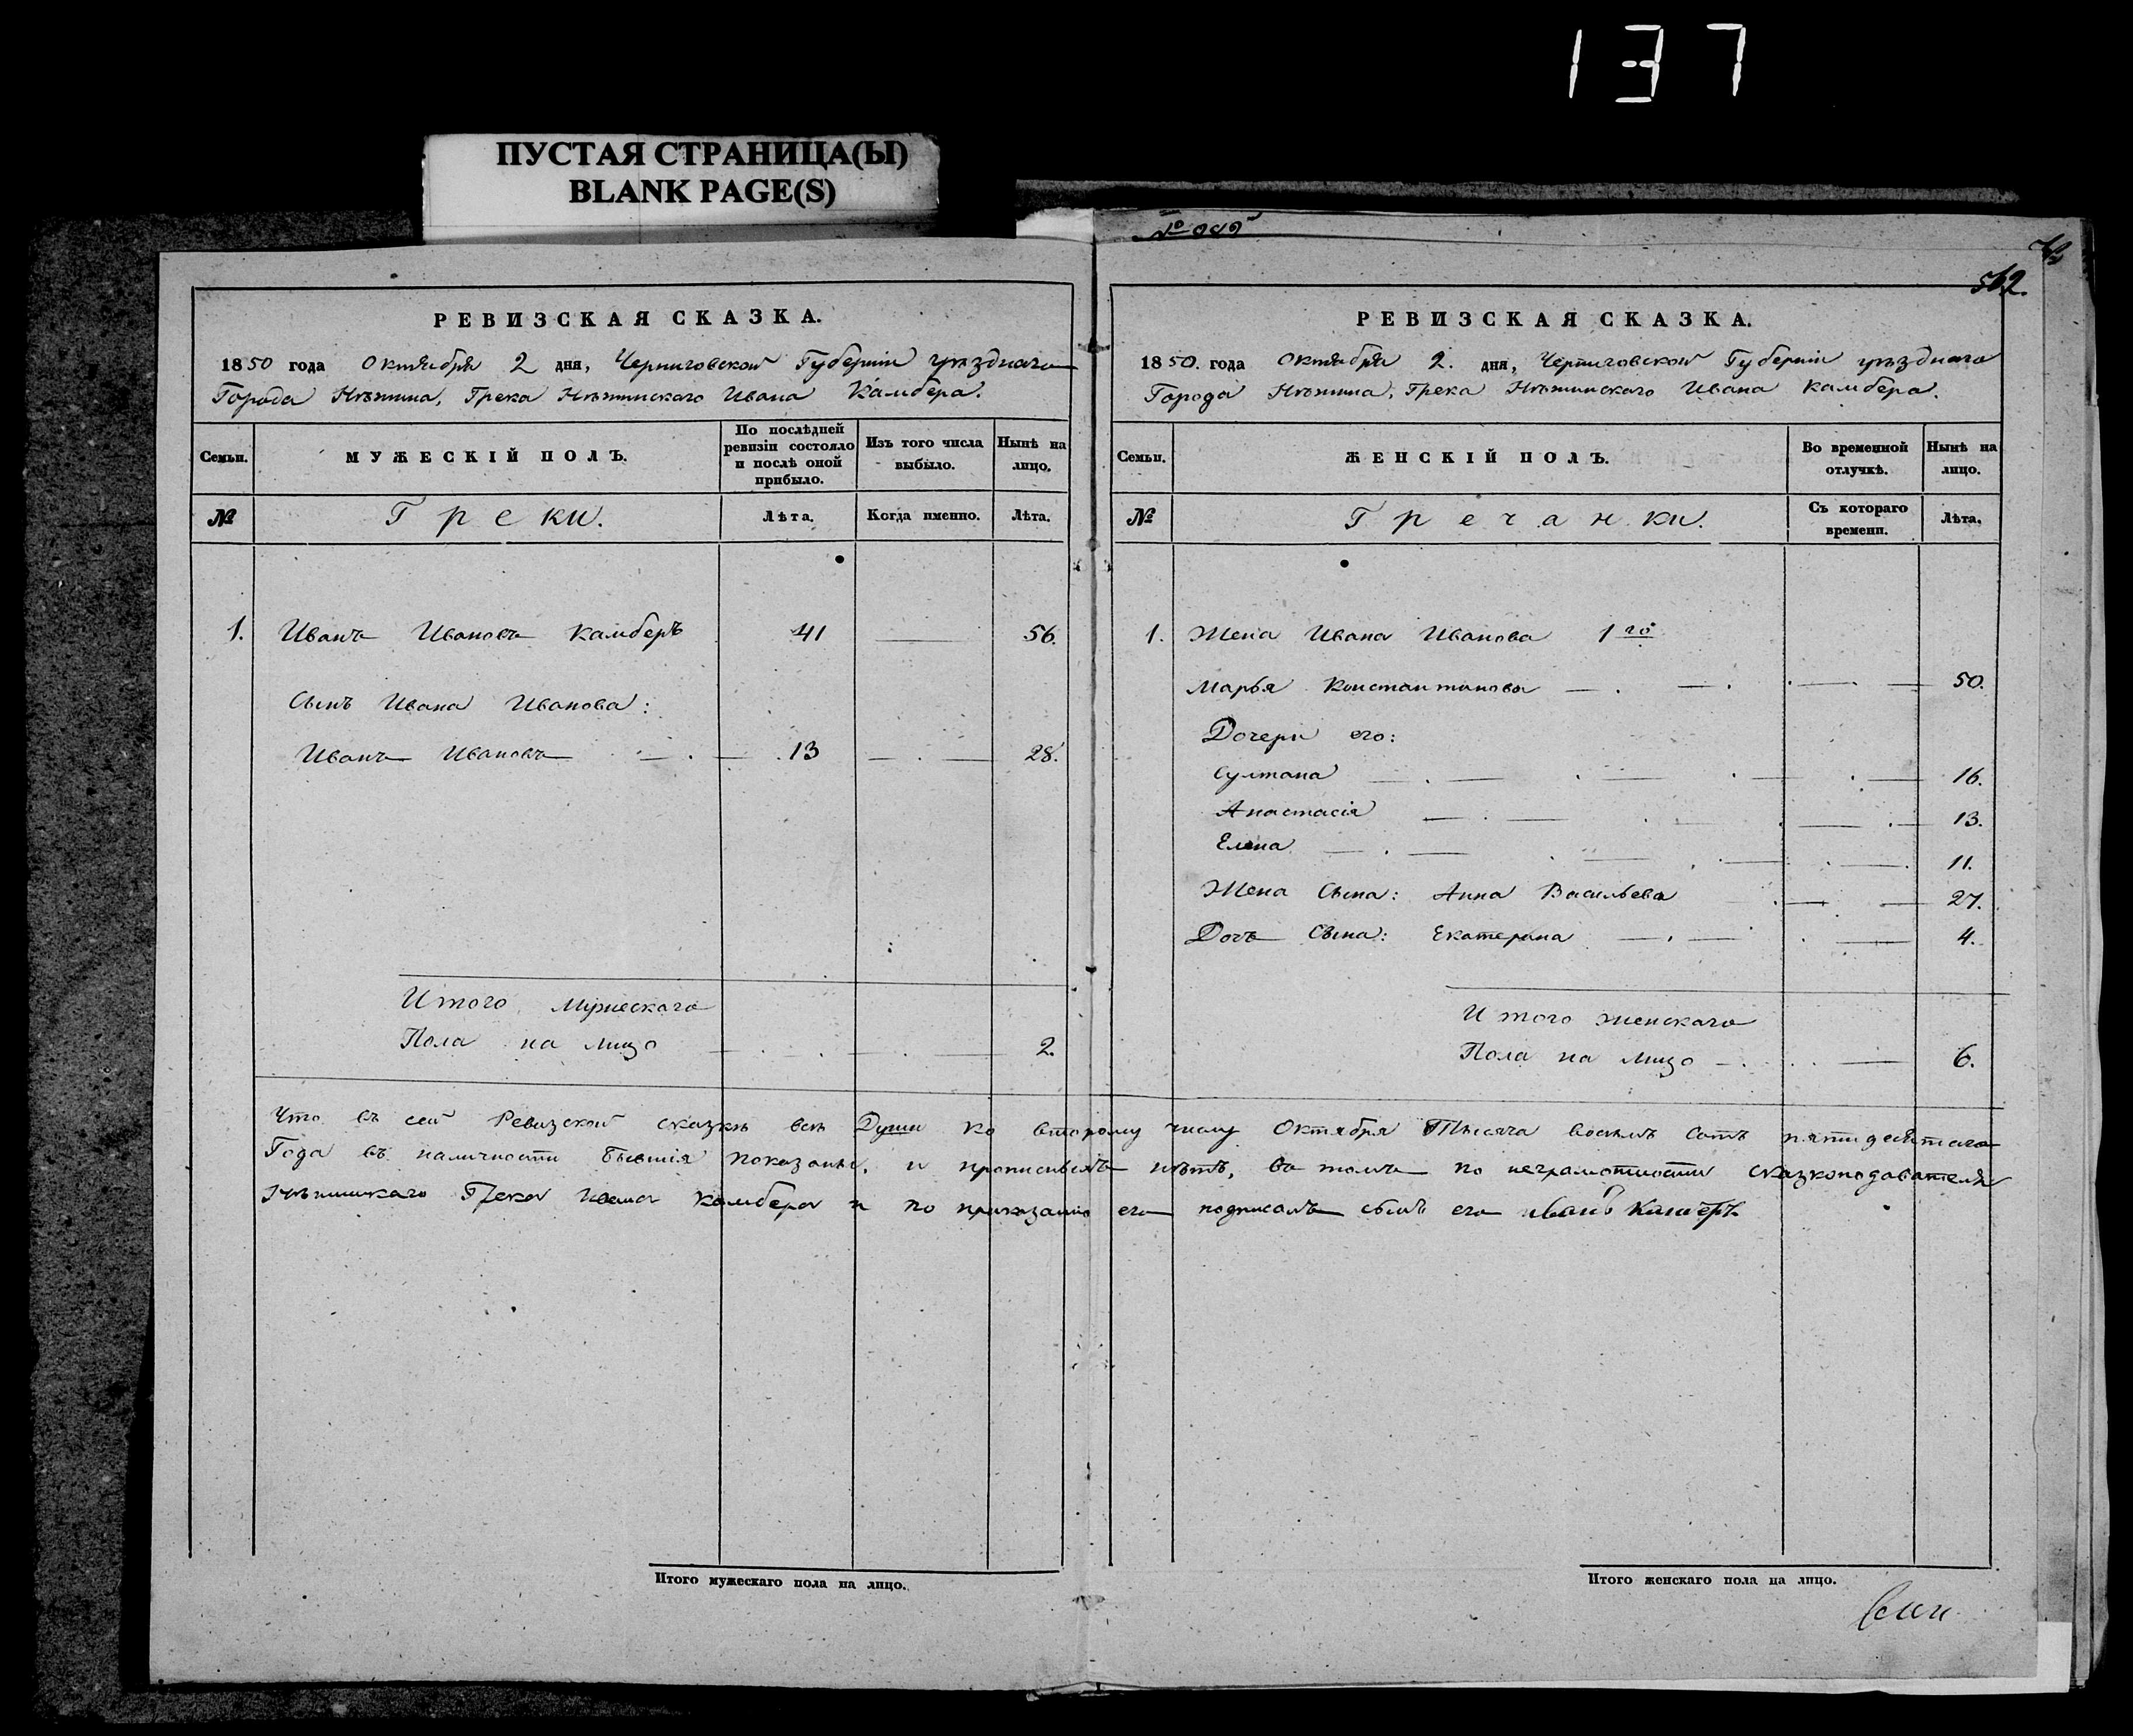 137
ПУСТАЯ СТРАНИЦА(Ы)
BLANK PAGE(S)
РЕВИЗСКАЯ СКАЗКА.
1850 года Октября 2 дня, Черниговской Губерніи уѣзднаго
Города Нѣжина, Грека Нѣжинскаго Ивана Камбера.
Семьи.
МУЖЕСКІЙ ПОЛЪ.
По послѣдней ревизіи состояло и послѣ оной прибыло.
Изъ того числа выбыло.
Нынѣ на лицо.
№
Греки.
Лѣта.
Когда именно.
Лѣта.
1. Иванъ Ивановъ Камберъ 41 — 56.
Сынъ Ивана Иванова:
Иванъ Ивановъ — . — 13 — . — 28.
Итого Мужескаго
Пола на лицо — . . — . — 2.
№
512.
РЕВИЗСКАЯ СКАЗКА.
1850. года Октября 2. дня, Черниговской Губерніи уѣзднаго
Города Нѣжина, Грека Нѣжинскаго Ивана Камбера.
Семьи.
ЖЕНСКІЙ ПОЛЪ.
Во временной отлучкѣ.
Нынѣ на лицо.
№
Гречанки.
Съ котораго времени.
Лѣта.
1. Жена Ивана Иванова 1го
Марья Константинова — . — . — . — 50.
Дочери его:
Султана — . — . — . — . — 16.
Анастасія — . — . — . — . — 13.
Елена — . — . — . — . — 11.
Жена Сына: Анна Васильева . — — 27.
Дочь Сына: Екатерина — . — . — 4.
Итого женскаго
Пола на лицо — . . — 6.
Что въ сей Ревизской сказкѣ всѣ Души ко второму числу Октября Тысяча восемь сотъ пятидесятаго
Года въ наличности бывшія показаны, и прописныхъ нѣтъ, въ томъ по неграмотности сказкоподавателя
Нѣжинскаго Грека Ивана Камбера и по приказанію его подписалъ сынъ его Иванъ Камберъ
Итого мужескаго пола на лицо.
Итого женскаго пола на лицо.